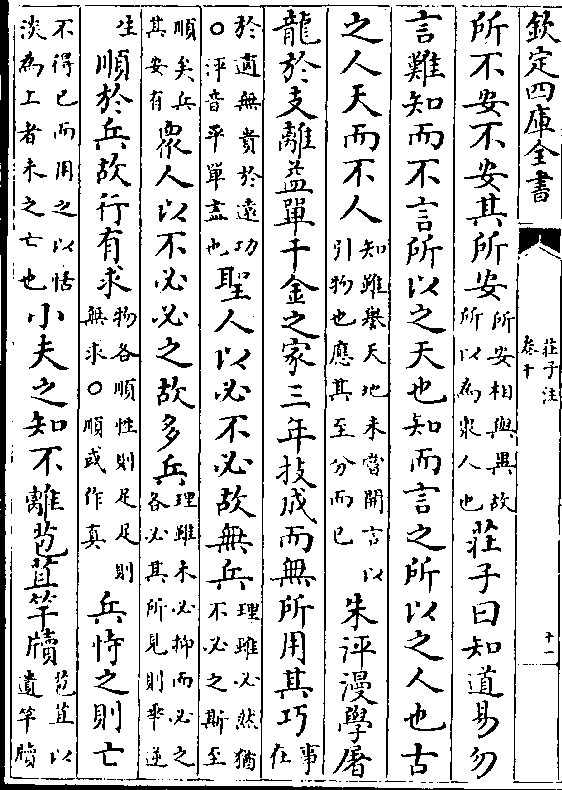 欽定四庫全書
莊子注
卷十
十一
所不安不安其所安所安相與異故所以為衆人也莊子曰知道易勿
言難知而不言所以之天也知而言之所以之人也古
之人天而不人知雖舉天地未嘗開言以引物也應其至分而已朱泙漫學屠
龍於支離益單千金之家三年技成而無所用其巧事在
於適無貴於遠功○泙音平單盡也聖人以必不必故無兵理雖必然猶不必之斯至
順矣兵其安有衆人以不必必之故多兵理雖未必抑而必之各必其所見則乖逆
生順於兵故行有求物各順性則足足則無求○順或作真兵恃之則亡
不得已而用之以恬淡為上者未之亡也小夫之知不離苞苴竿牘苞苴以遺竿牘